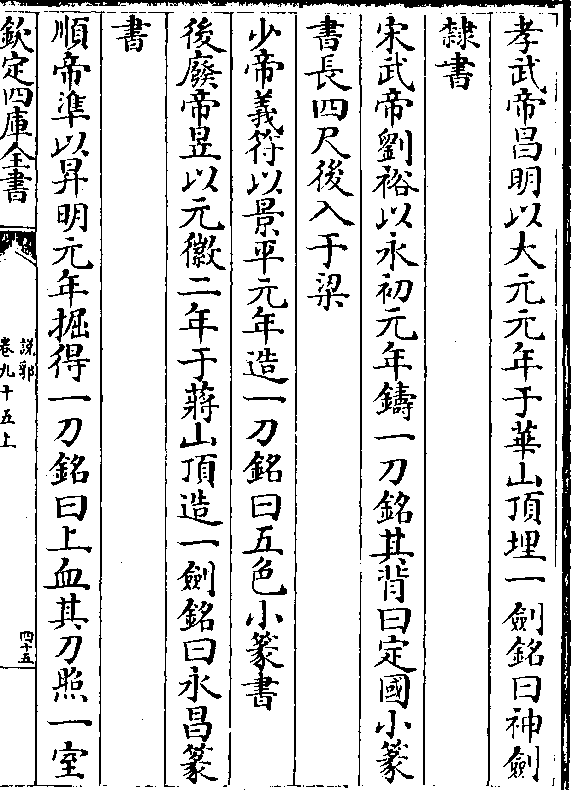 孝武帝昌明以大元元年于華山頂埋一劍銘曰神劍
隸書
宋武帝劉裕以永初元年鑄一刀銘其背曰定國小篆
書長四尺後入于梁
少帝義符以景平元年造一刀銘曰五色小篆書
後廢帝昱以元徽二年于蔣山頂造一劍銘曰永昌篆
書
順帝準以昇明元年掘得一刀銘曰上血其刀照一室
欽定四庫全書
說郛
卷九十五上
四十五